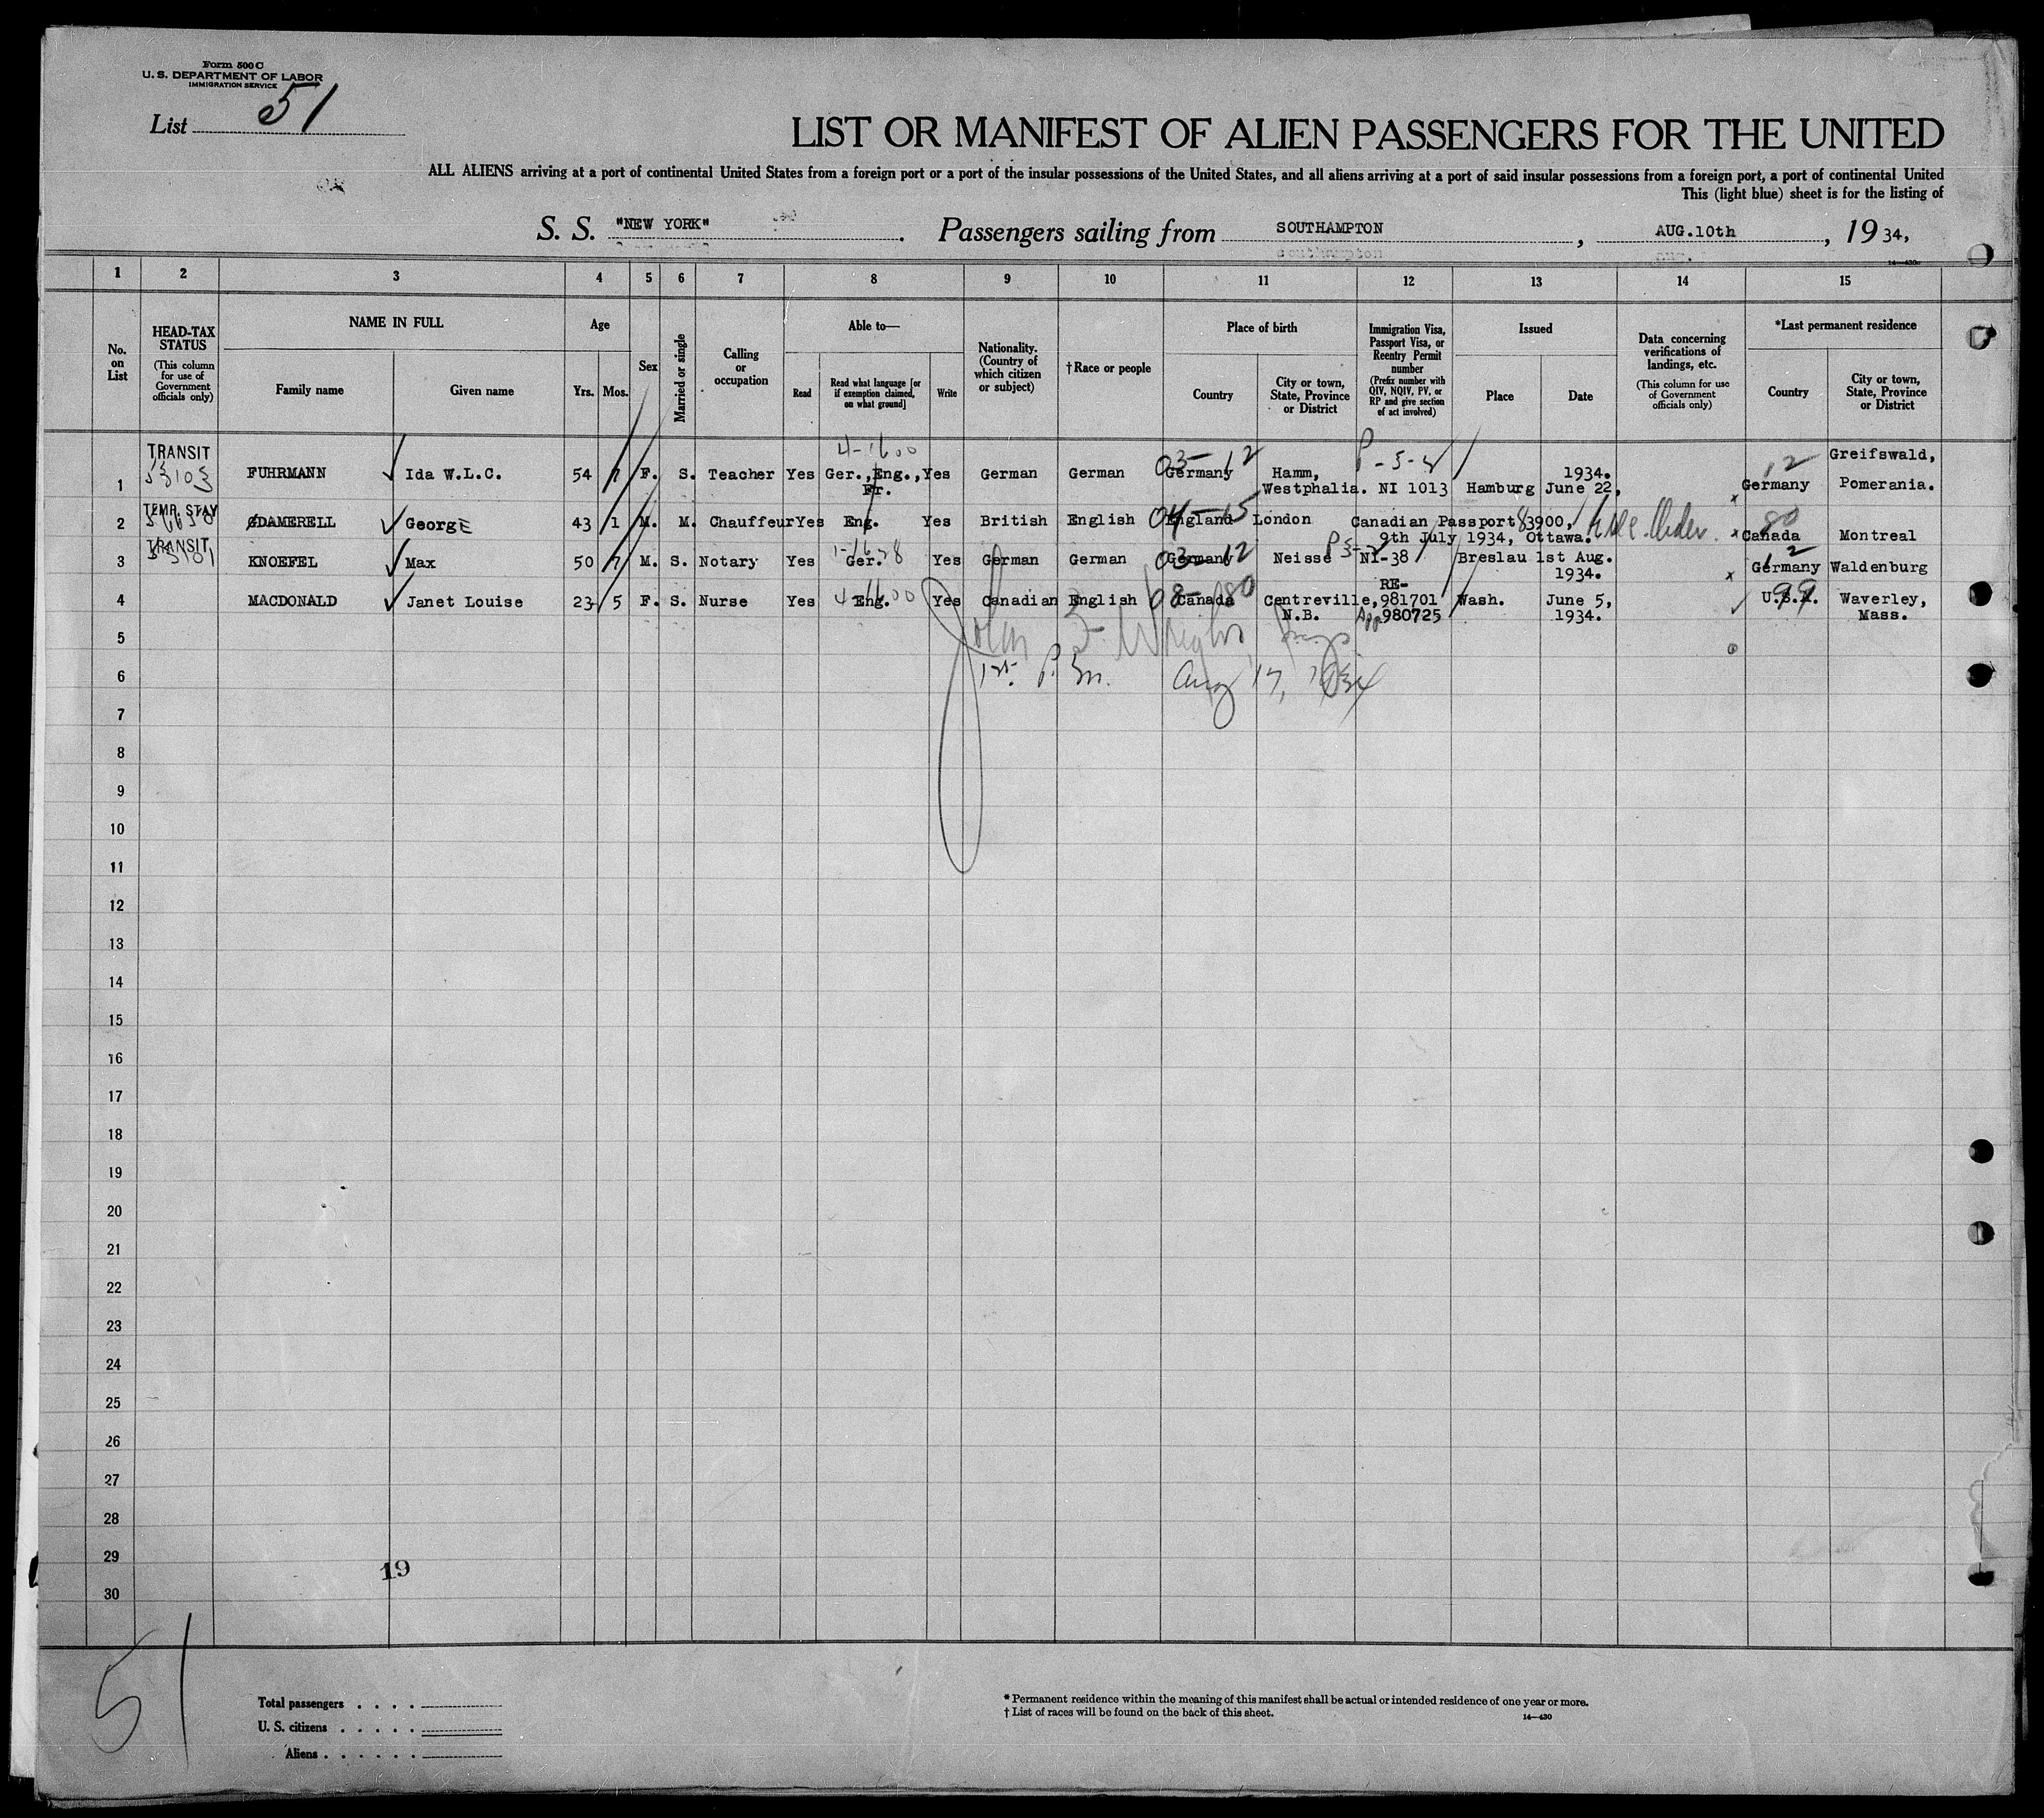 Form 500 C
U. S. DEPARTMENT OF LABOR
IMMIGRATION SERVICE
List 51
LIST OR MANIFEST OF ALIEN PASSENGERS FOR THE UNITED
ALL ALIENS arriving at a port of continental United States from a foreign port or a port of the insular possessions of the United States, and all aliens arriving at a port of said insular possessions from a foreign port, a port of continental United
This (light blue) sheet is for the listing of
S. S. "NEW YORK" . Passengers sailing from SOUTHAMPTON , AUG.10th , 19 34,
14-430
1 2 3 4 5 6 7 8 9 10 11 12 13 14 15
No. on List
HEAD-TAX STATUS
(This column for use of Government officials only)
NAME IN FULL
Family name
Given name
Age
Yrs.
Mos.
Sex
Married or single
Calling or occupation
Able to—
Read
Read what language [or if exemption claimed, on what ground]
Write
Nationality. (Country of which citizen or subject)
†Race or people
Place of birth
Country
City or town, State, Province or District
Immigration Visa, Passport Visa, or Reentry Permit number
(Prefix number with QIV, NQIV, PV, or RP and give section of act involved)
Issued
Place
Date
Data concerning verifications of landings, etc.
(This column for use of Government officials only)
*Last permanent residence
Country
City or town, State, Province or District
TRANSIT 4-1600 03-12 P-3-2 12 Greifswald,
53103 FUHRMANN Ida W.L.C. 54 7 F. S. Teacher Yes Ger.,Eng., Yes German German Germany Hamm, 1934.
1 Fr. Westphalia. NI 1013 Hamburg June 22, Germany Pomerania.
TEMP. STAY
2 DAMERELL GeorgE 43 1 M. M. Chauffeur Yes Eng. Yes British English England 04-15 London Canadian Passport 83900, 80
TRANSIT 9th July 1934, Ottawa. x Canada Montreal
53101 1-1628 03-12 12
3 KNOEFEL Max 50 7 M. S. Notary Yes Ger. Yes German German Germany Neisse NI-38 Breslau 1st Aug. Germany Waldenburg
1934.
RE-
4 MACDONALD Janet Louise 23 5 F. S. Nurse Yes 4-1600 Eng. Yes Canadian English 08-80 Canada Centreville, 981701 Wash. June 5, 99 U.S.A. Waverley,
N.B. App 980725 1934. Mass.
5
6 Aug 17, 1934
7
8
9
10
11
12
13
14
15
16
17
18
19
20
21
22
23
24
25
26
27
28
29
19
30
51
Total passengers . . . .
U. S. citizens . . . . .
Aliens . . . . . .
* Permanent residence within the meaning of this manifest shall be actual or intended residence of one year or more.
† List of races will be found on the back of this sheet.
14-430